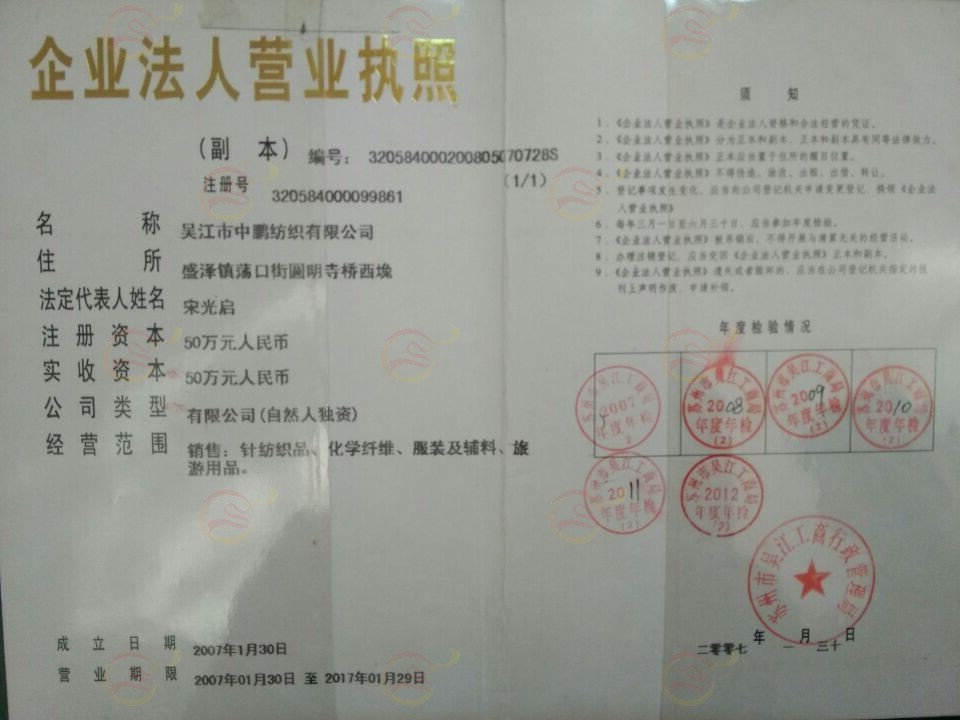 企业法人营业执照
（副 本） 编号： 320584000200805070728S
（1/1）
注册号 320584000099861
名称 吴江市中鹏纺织有限公司
住所 盛泽镇荡口街圆明寺桥西堍
法定代表人姓名 宋光启
注册资本 50万元人民币
实收资本 50万元人民币
公司类型 有限公司(自然人独资)
经营范围 销售：针纺织品、化学纤维、服装及辅料、旅
游用品。
成立日期 2007年1月30日
营业期限 2007年01月30日 至 2017年01月29日
须 知
1．《企业法人营业执照》是企业法人资格和合法经营的凭证。
2．《企业法人营业执照》分为正本和副本，正本和副本具有同等法律效力。
3．《企业法人营业执照》正本应当置于住所的醒目位置。
4．《企业法人营业执照》不得伪造、涂改、出租、出借、转让。
5．登记事项发生变化，应当向公司登记机关申请变更登记，换领《企业法
人营业执照》
6．每年三月一日至六月三十日，应当参加年度检验。
7．《企业法人营业执照》被吊销后，不得开展与清算无关的经营活动。
8．办理注销登记，应当交回《企业法人营业执照》正本和副本。
9．《企业法人营业执照》遗失或者毁坏的，应当在公司登记机关指定的报
刊上声明作废，申请补领。
年度检验情况
苏州市吴江工商局 2007 年度年检 2
苏州市吴江工商局 2008 年度年检 (2)
苏州市吴江工商局 2009 年度年检 (2)
苏州市吴江工商局 2010 年度年检 (2)
苏州市吴江工商局 2011 年度年检 (2)
苏州市吴江工商局 2012 年度年检 (2)
苏州市吴江工商行政管理局
二零零七 年 一 月 三十 日